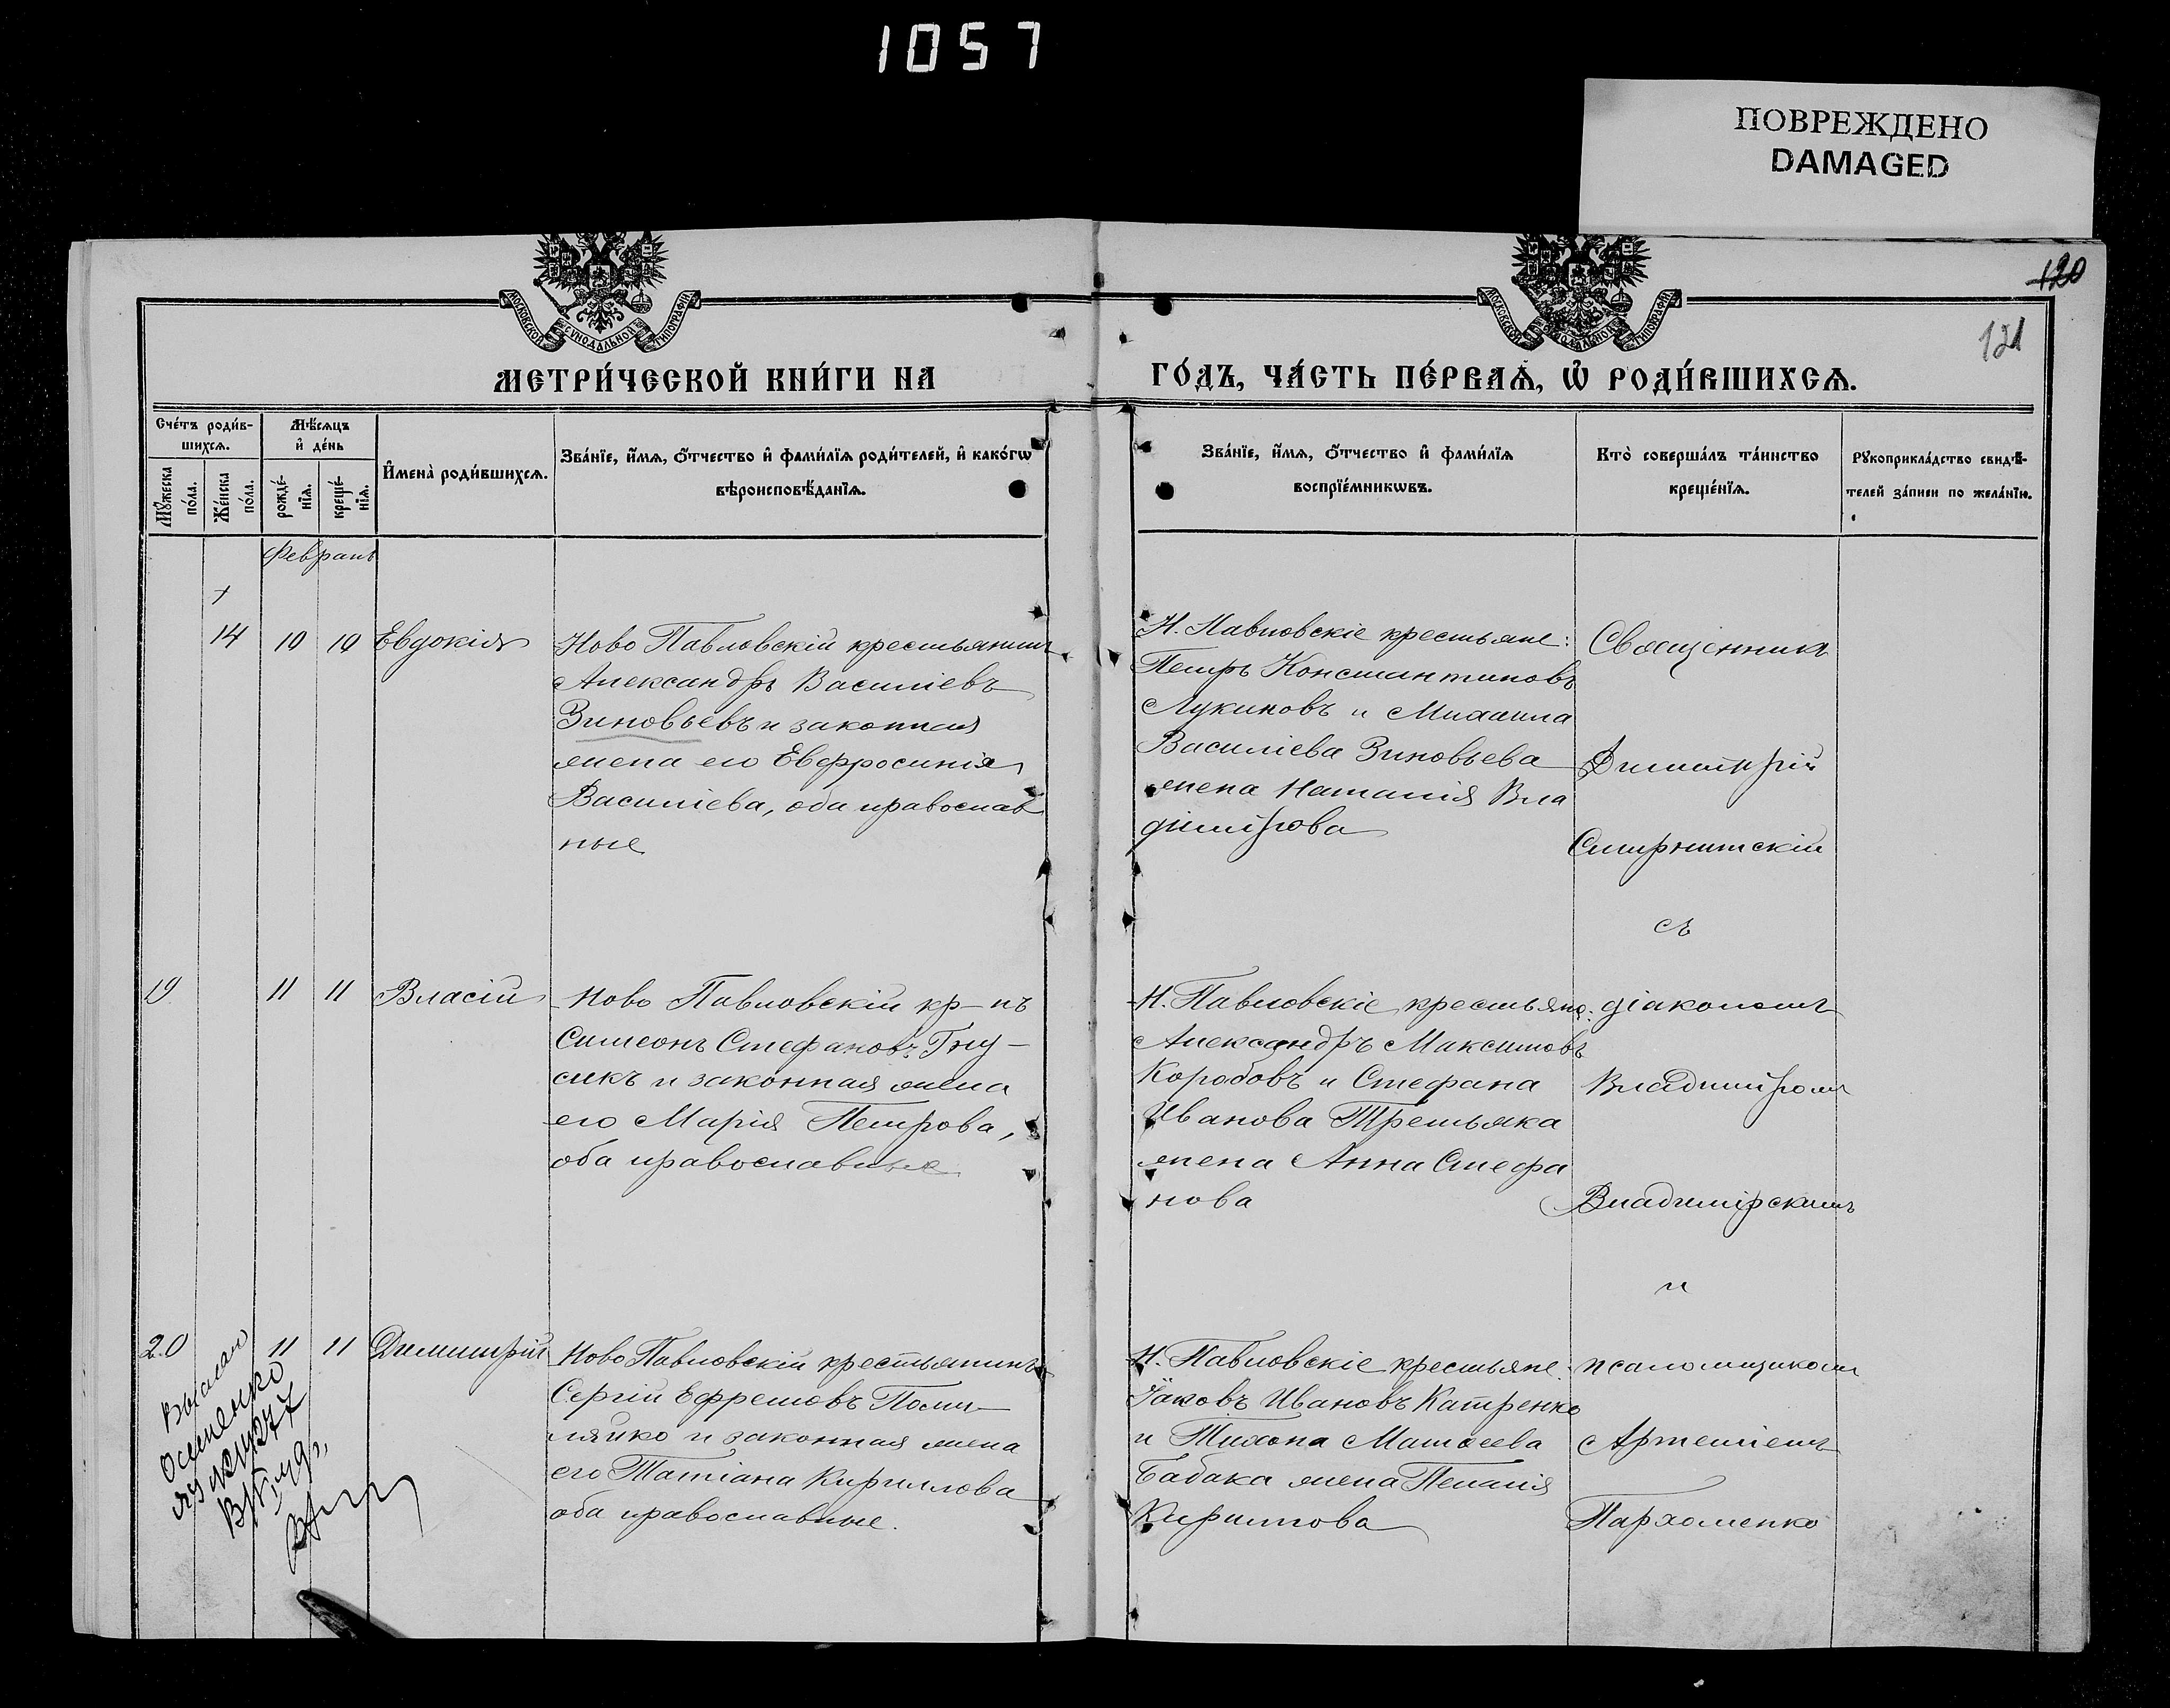 1057
ПОВРЕЖДЕНО
DAMAGED
МОСКОВСКОЙ СУНОДАЛЬНОЙ ТИПОГРАФІИ
МОСКОВСКОЙ СУНОДАЛЬНОЙ ТИПОГРАФІИ
120
121
МЕТРИ́ЧЕСКОЙ КНИ́ГИ НА
ГО́ДЪ, ЧА́СТЬ ПЕ́РВАѦ, Ѡ҆ РОДИ́ВШИХСѦ.
Сче́тъ роди́в-
шихсѧ.
Мꙋ́жеска
по́ла.
Же́нска
по́ла.
Мѣ́сѧцъ
и҆ де́нь
рожде́-
нїѧ.
креще́-
нїѧ.
И҆мена̀ роди́вшихсѧ.
Зва́нїе, и҆́мѧ, ѻ҆́тчество и҆ фами́лїѧ роди́телей, и҆ како́гѡ
вѣроисповѣ́данїѧ.
Зва́нїе, и҆́мѧ, ѻ҆́тчество и҆ фами́лїѧ
воспрїе́мникѡвъ.
Кто̀ соверша́лъ та́инство
креще́нїѧ.
Рꙋкоприкла́дство свидѣ́-
телей за́писи по жела́нїю.
Февраль
14 10 10 Евдокія
Ново Павловскій крестьянинъ
Александръ Василіевъ
Зиновьевъ и законная
жена его Евфросинія
Василіева, оба православ
ные
Н. Павловскіе крестьяне:
Петръ Константиновъ
Лукиновъ и Михаила
Василіева Зиновьева
жена Наталія Вла
димірова
Священникъ
Димитрій
Смирнитскій
съ
19 11 11 Власій
Ново Павловскій кр-нъ
Симеонъ Стефановъ Гну-
сикъ и законная жена
его Марія Петрова,
оба православные
Н. Павловскіе крестьяне:
Александръ Максимовъ
Коробовъ и Стефана
Иванова Третьяка
жена Анна Стефа
нова
діакономъ
Владиміромъ
Владимірскимъ
и
20 11 11 Димитрій
Ново Павловскій крестьянинъ
Сергій Ефремовъ Поми-
ляйко и законная жена
его Татіана Кириллова
оба православные.
Н. Павловскіе крестьяне:
Іаковъ Ивановъ Катренко
и Тихона Матѳеева
Бабака жена Пелагія
Кириллова
псаломщикомъ
Артеміемъ
Пархоменко